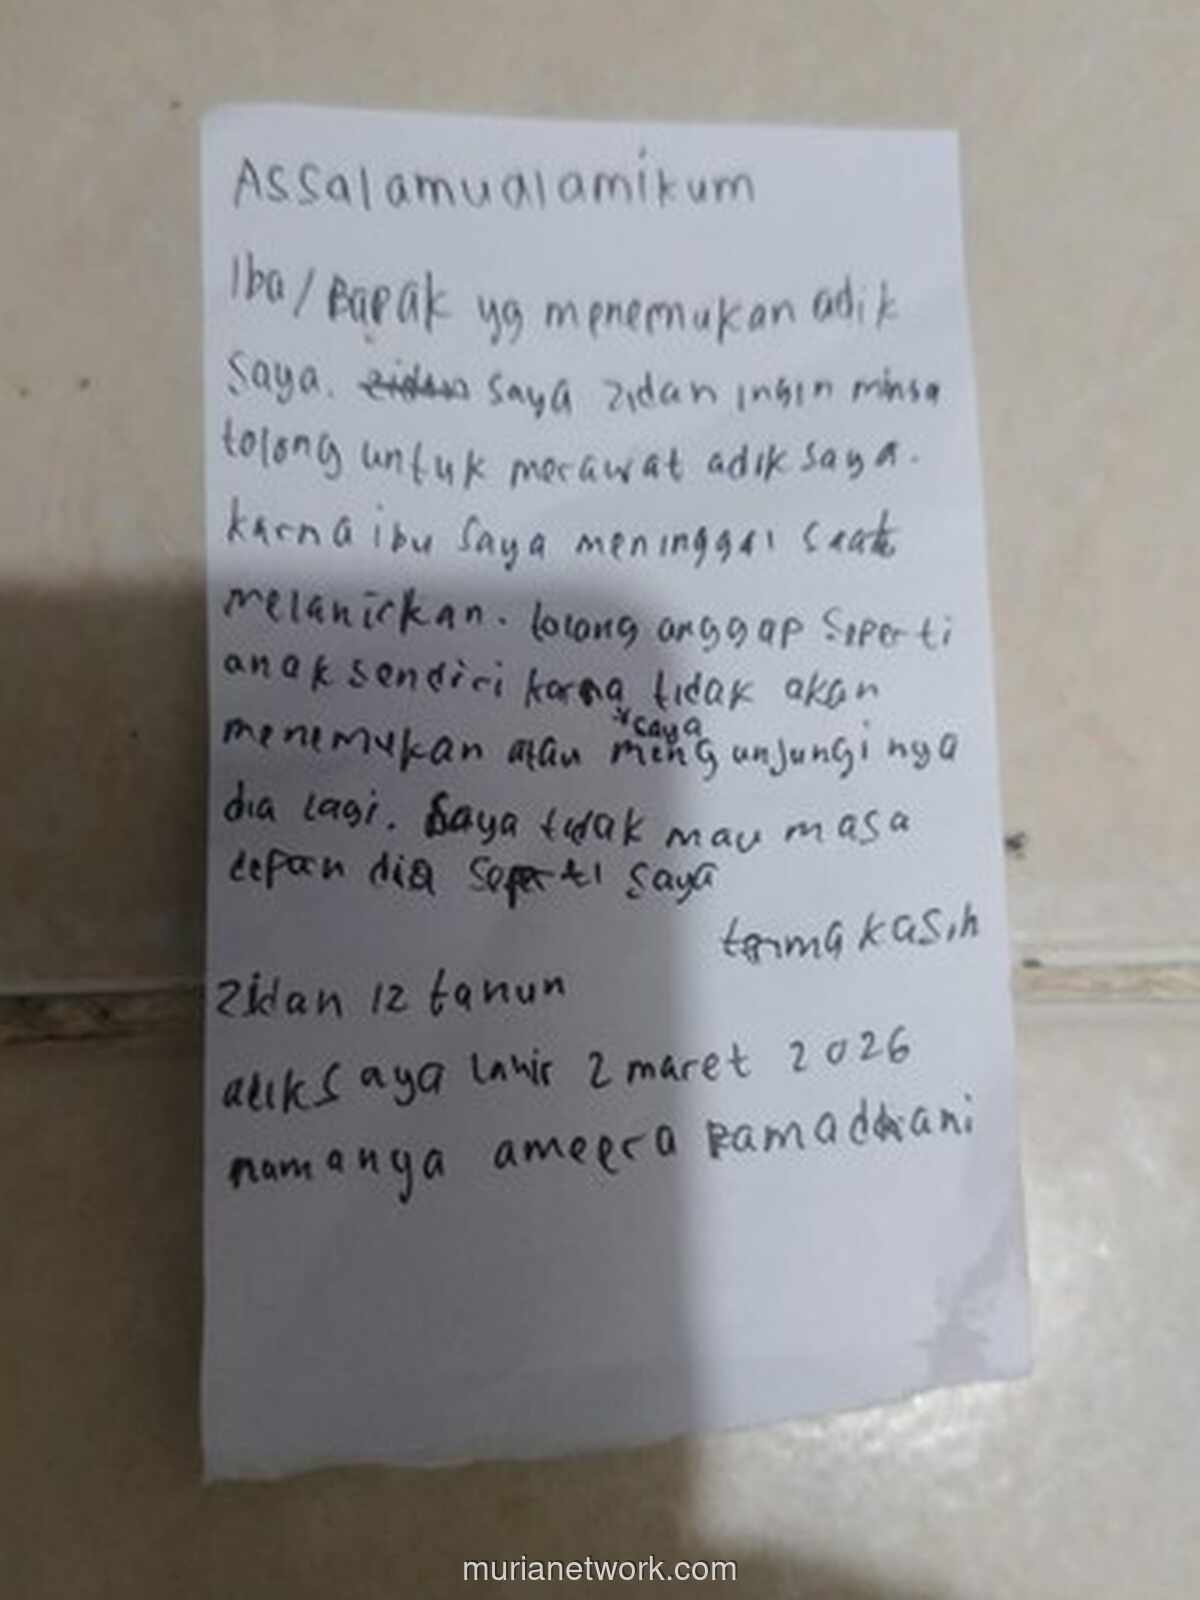 Assalamualamikum
Iba/Bapak yg menemukan adik
saya. zidan saya zidan ingin minsa
tolong untuk merawat adik saya.
karna ibu saya meninggal saat
melanirkan. tolong anggap seperti
anak sendiri karna tidak akan
*saya
menemukan atau mengunjungi nya
dia lagi. Saya tidak mau masa
depan dia seperti saya
termakasih
Zidan 12 tanun
adik saya Lahir 2 maret 2026
namanya ameera Ramadhani
murianetwork.com